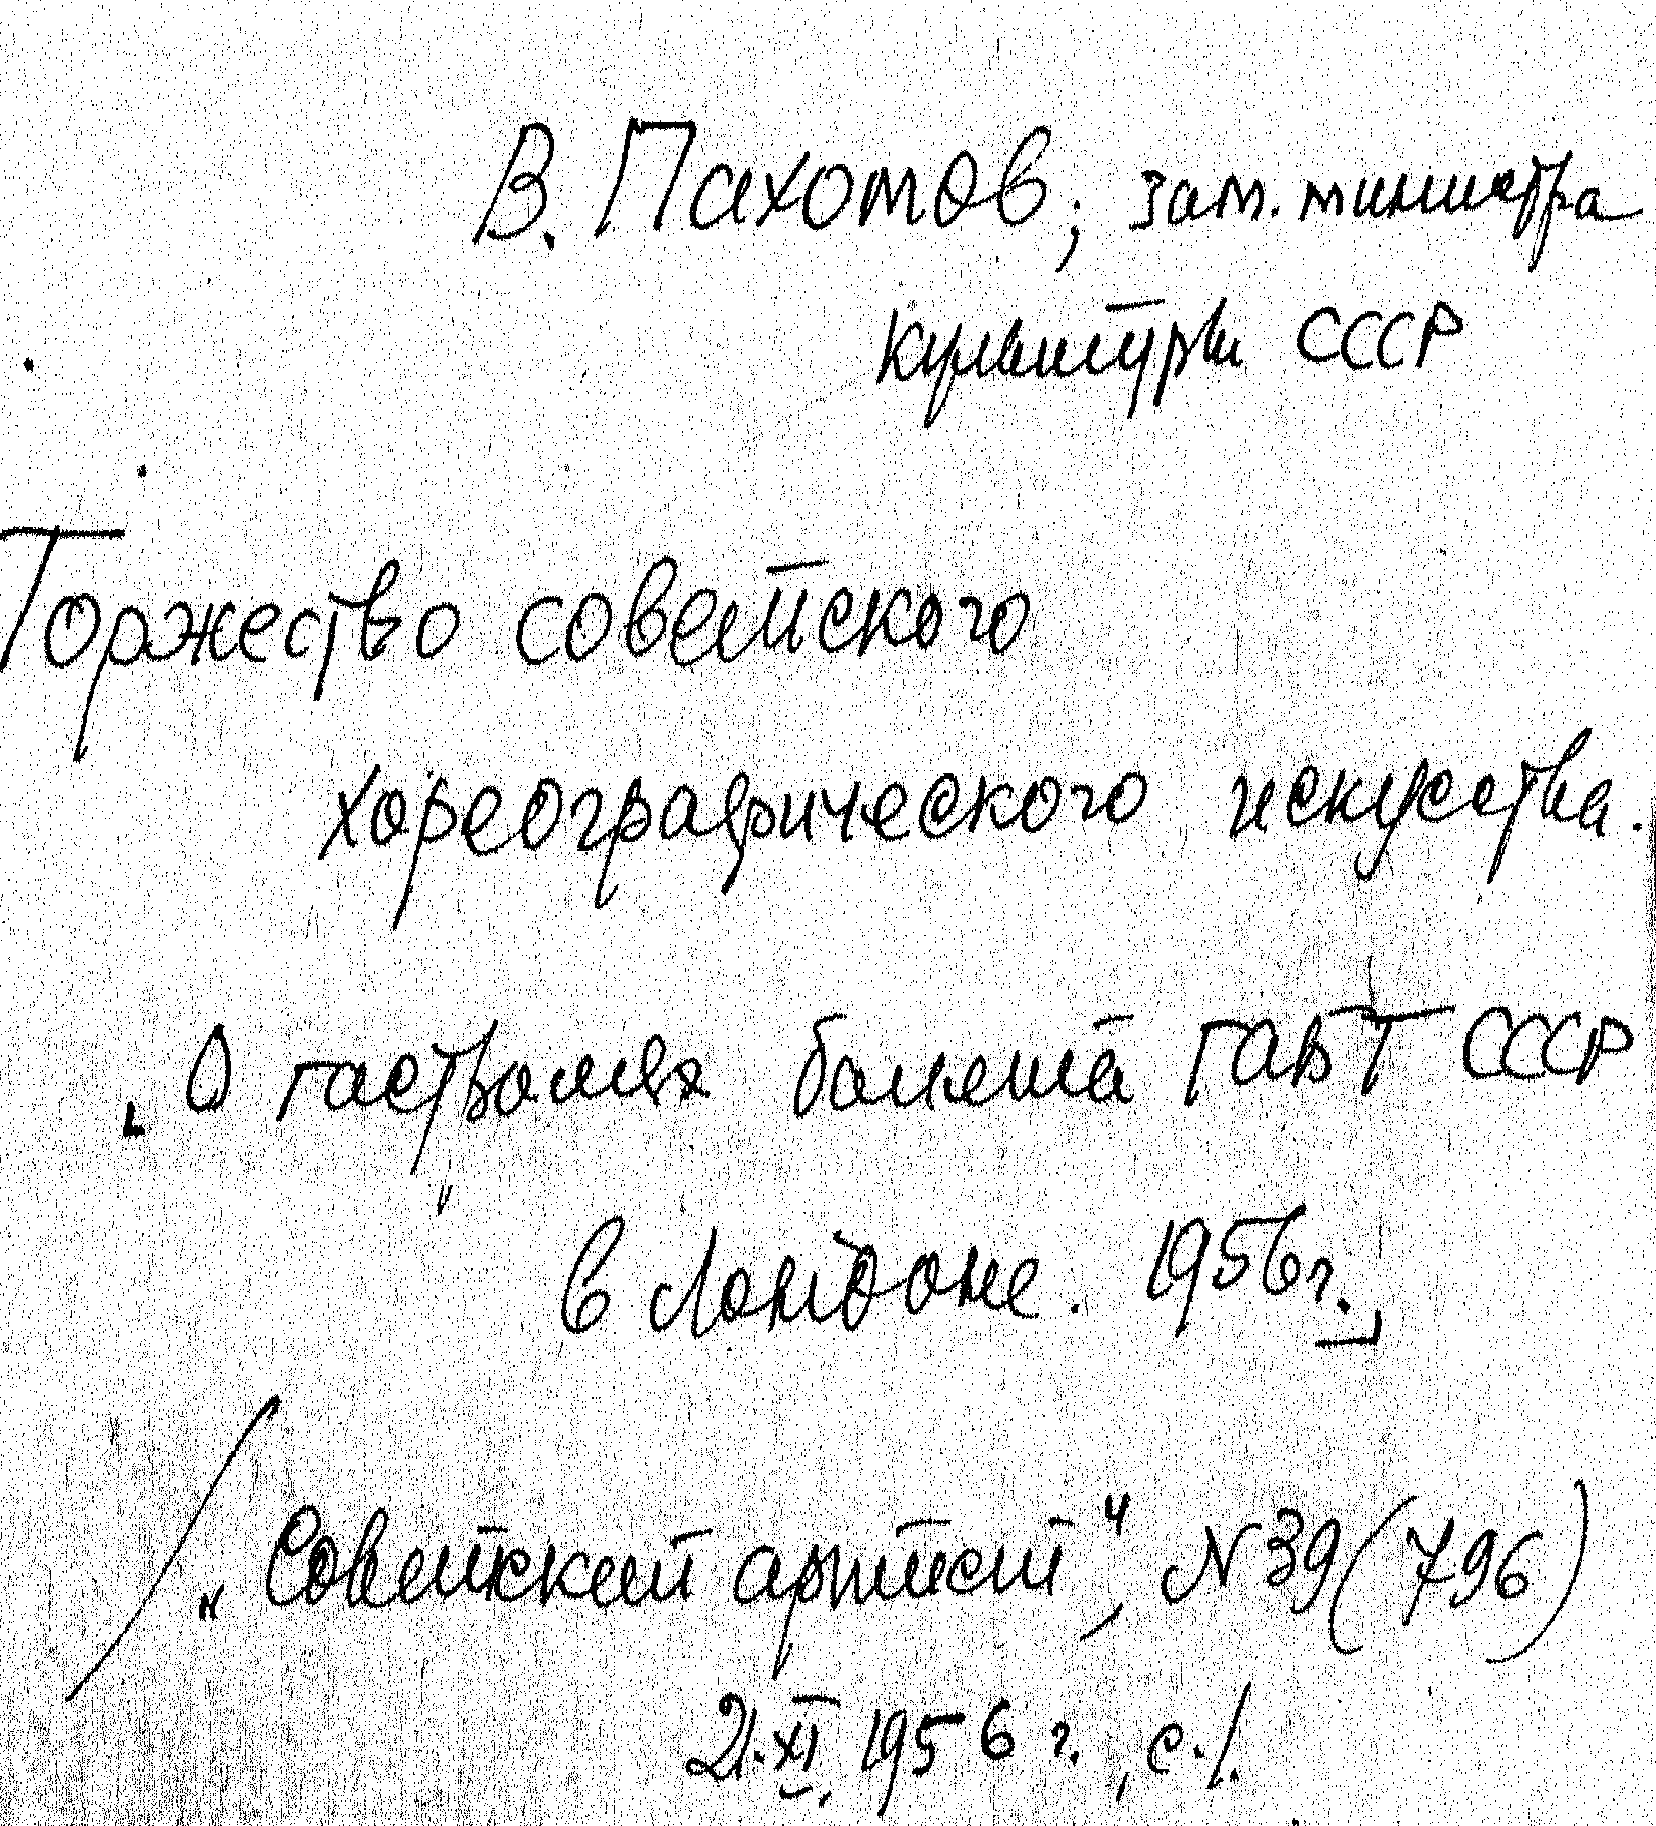 В. Пахомов, зам. министра
культуры СССР
Торжество советского
хореографического искусства.
О гастролях балета ГАБТ СССР
в Лондоне. 1956г.
„Советский артист“, N 39 (796)
21.XI. 1956 г., с. 1.